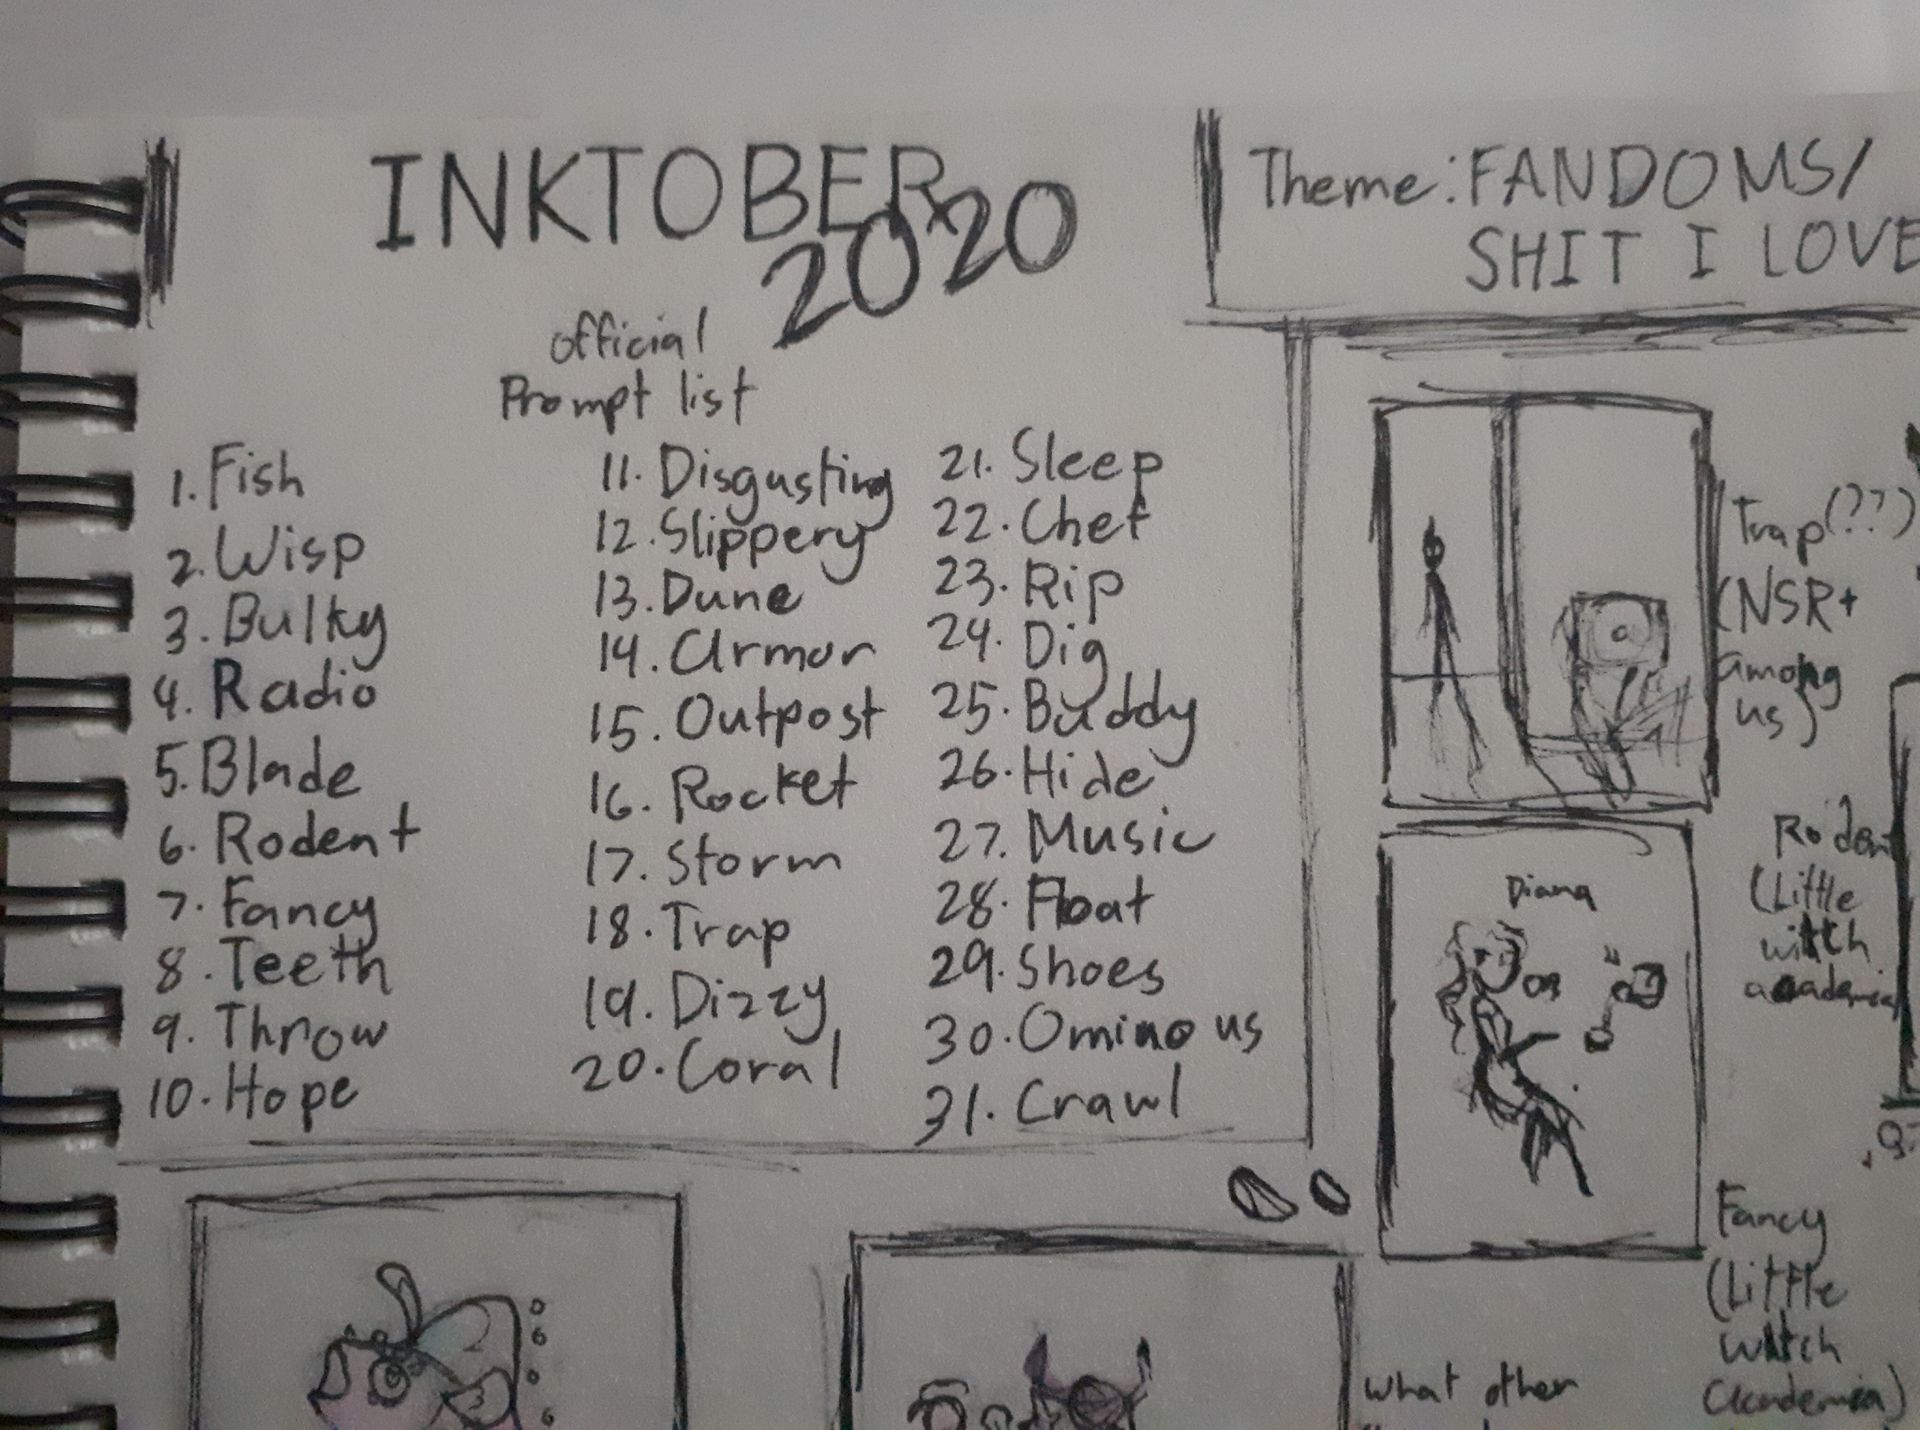 INKTOBER
2020
official
Prompt list
1. Fish
2. Wisp
3. Bulky
4. Radio
5. Blade
6. Rodent
7. Fancy
8. Teeth
9. Throw
10. Hope
11. Disgusting
12. Slippery
13. Dune
14. Armor
15. Outpost
16. Rocket
17. Storm
18. Trap
19. Dizzy
20. Coral
21. Sleep
22. Chef
23. Rip
24. Dig
25. Buddy
26. Hide
27. Music
28. Float
29. Shoes
30. Ominous
31. Crawl
Theme: FANDOMS/
SHIT I LOVE
Trap (??)
(NSR+
among
us)
Diana
Rodent
(Little
witch
academia
Fancy
(Little
witch
Academia)
what other